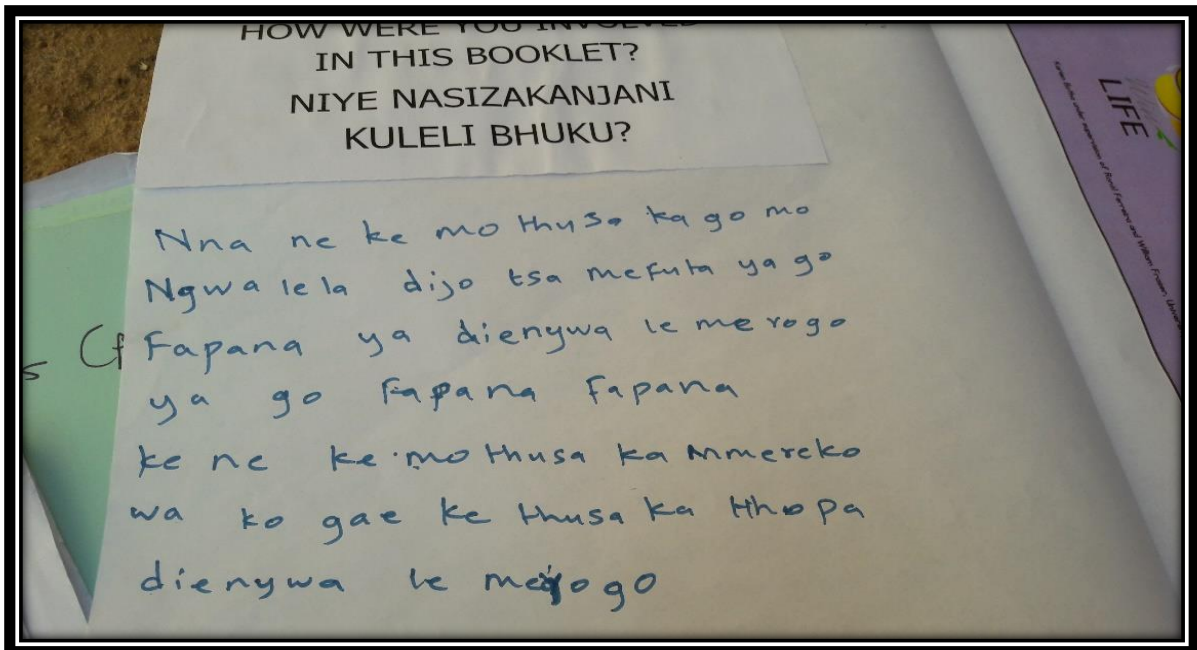 HOW WERE YOU INVOLVED
IN THIS BOOKLET?
NIYE NASIZAKANJANI
KULELI BHUKU?
Nna ne ke mo thusa ka go mo
Ngwa lela dijo tsa mefuta ya go
Fapana ya dienywa le merogo
ya go Fapana Fapana
ke ne ke mo thusa ka Mmereko
wa ko gae ke thusa ka tthopa
dienywa le merogo
LIFE